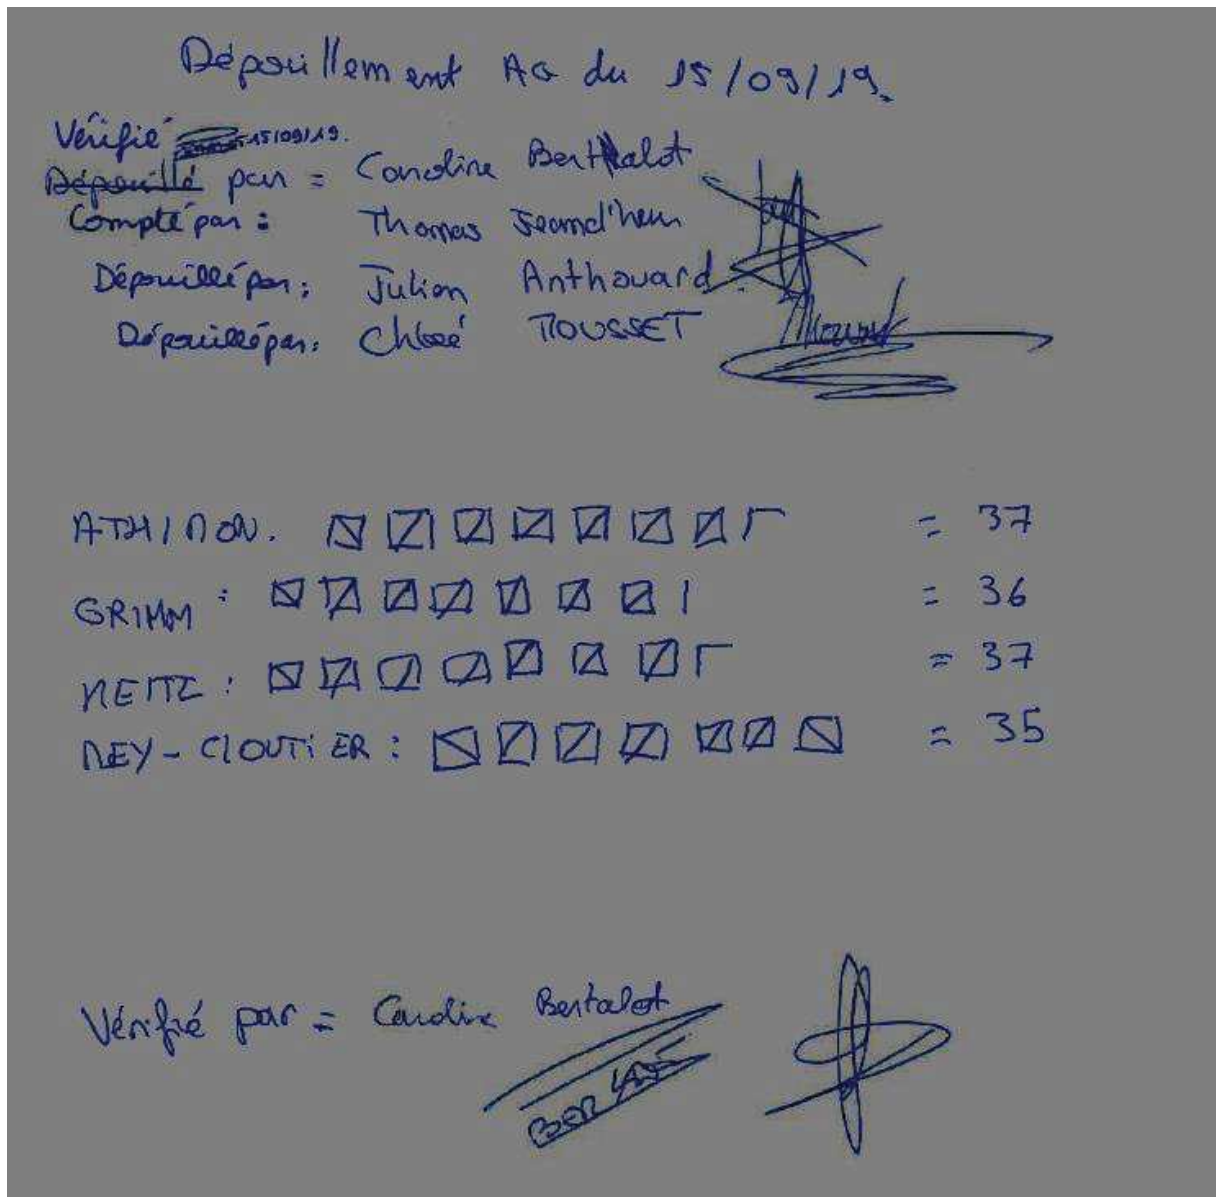 Dépouillement AG du 15/09/19.
Vérifié 15/09/19.
Dépouillé par = Caroline Berthalot
Compté par : Thomas Jeand'heur
Dépouillé par : Julien Anthouard
Dépouillé par : Chloé ROUSSET
ATHIMON. = 37
GRIMM : = 36
NEITZ : = 37
NEY-CLOUTIER : = 35
Vérifié par = Caroline Bertalot